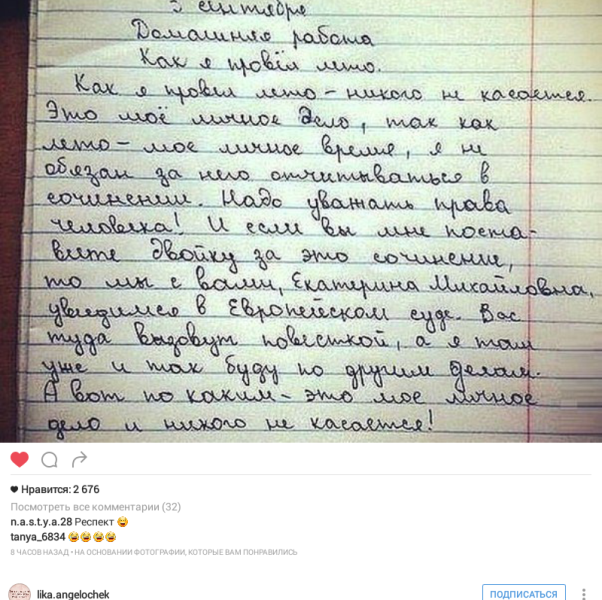 3 сентября
Домашняя работа
Как я провёл лето.
Как я провел лето – никого не касается.
Это моё личное дело, так как
лето – мое личное время, я не
обязан за него отчитываться в
сочинении. Надо уважать права
человека! И если вы мне поста-
вите двойку за это сочинение,
то мы с вами, Екатерина Михайловна,
увидимся в Европейском суде. Вас
туда вызовут повесткой, а я там
уже и так буду по другим делам.
А вот по каким – это мое личное
дело и никого не касается!
Нравится: 2 676
Посмотреть все комментарии (32)
n.a.s.t.y.a.28 Респект 😅
tanya_6834 😂😂😂😂
8 ЧАСОВ НАЗАД • НА ОСНОВАНИИ ФОТОГРАФИИ, КОТОРЫЕ ВАМ ПОНРАВИЛИСЬ
lika.angelochek
ПОДПИСАТЬСЯ